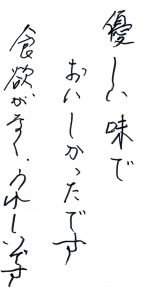 優しい味で
おいしかったです
食欲がなく、うれしいです